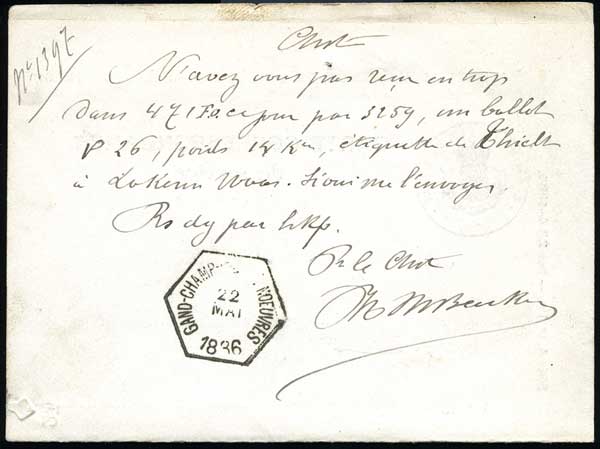 N° 1397
Chst
N'avez vous pas reçu en trop
dans 471 ce jour par 3259, un ballot
P 26, poids 18 Ks, étiquette de Thielt
à Lokeren Waas. Si oui me l'envoyer.
Rs dg par
P. le Chst
GAND-CHAMP NOEUVRES
22
MAI
1886